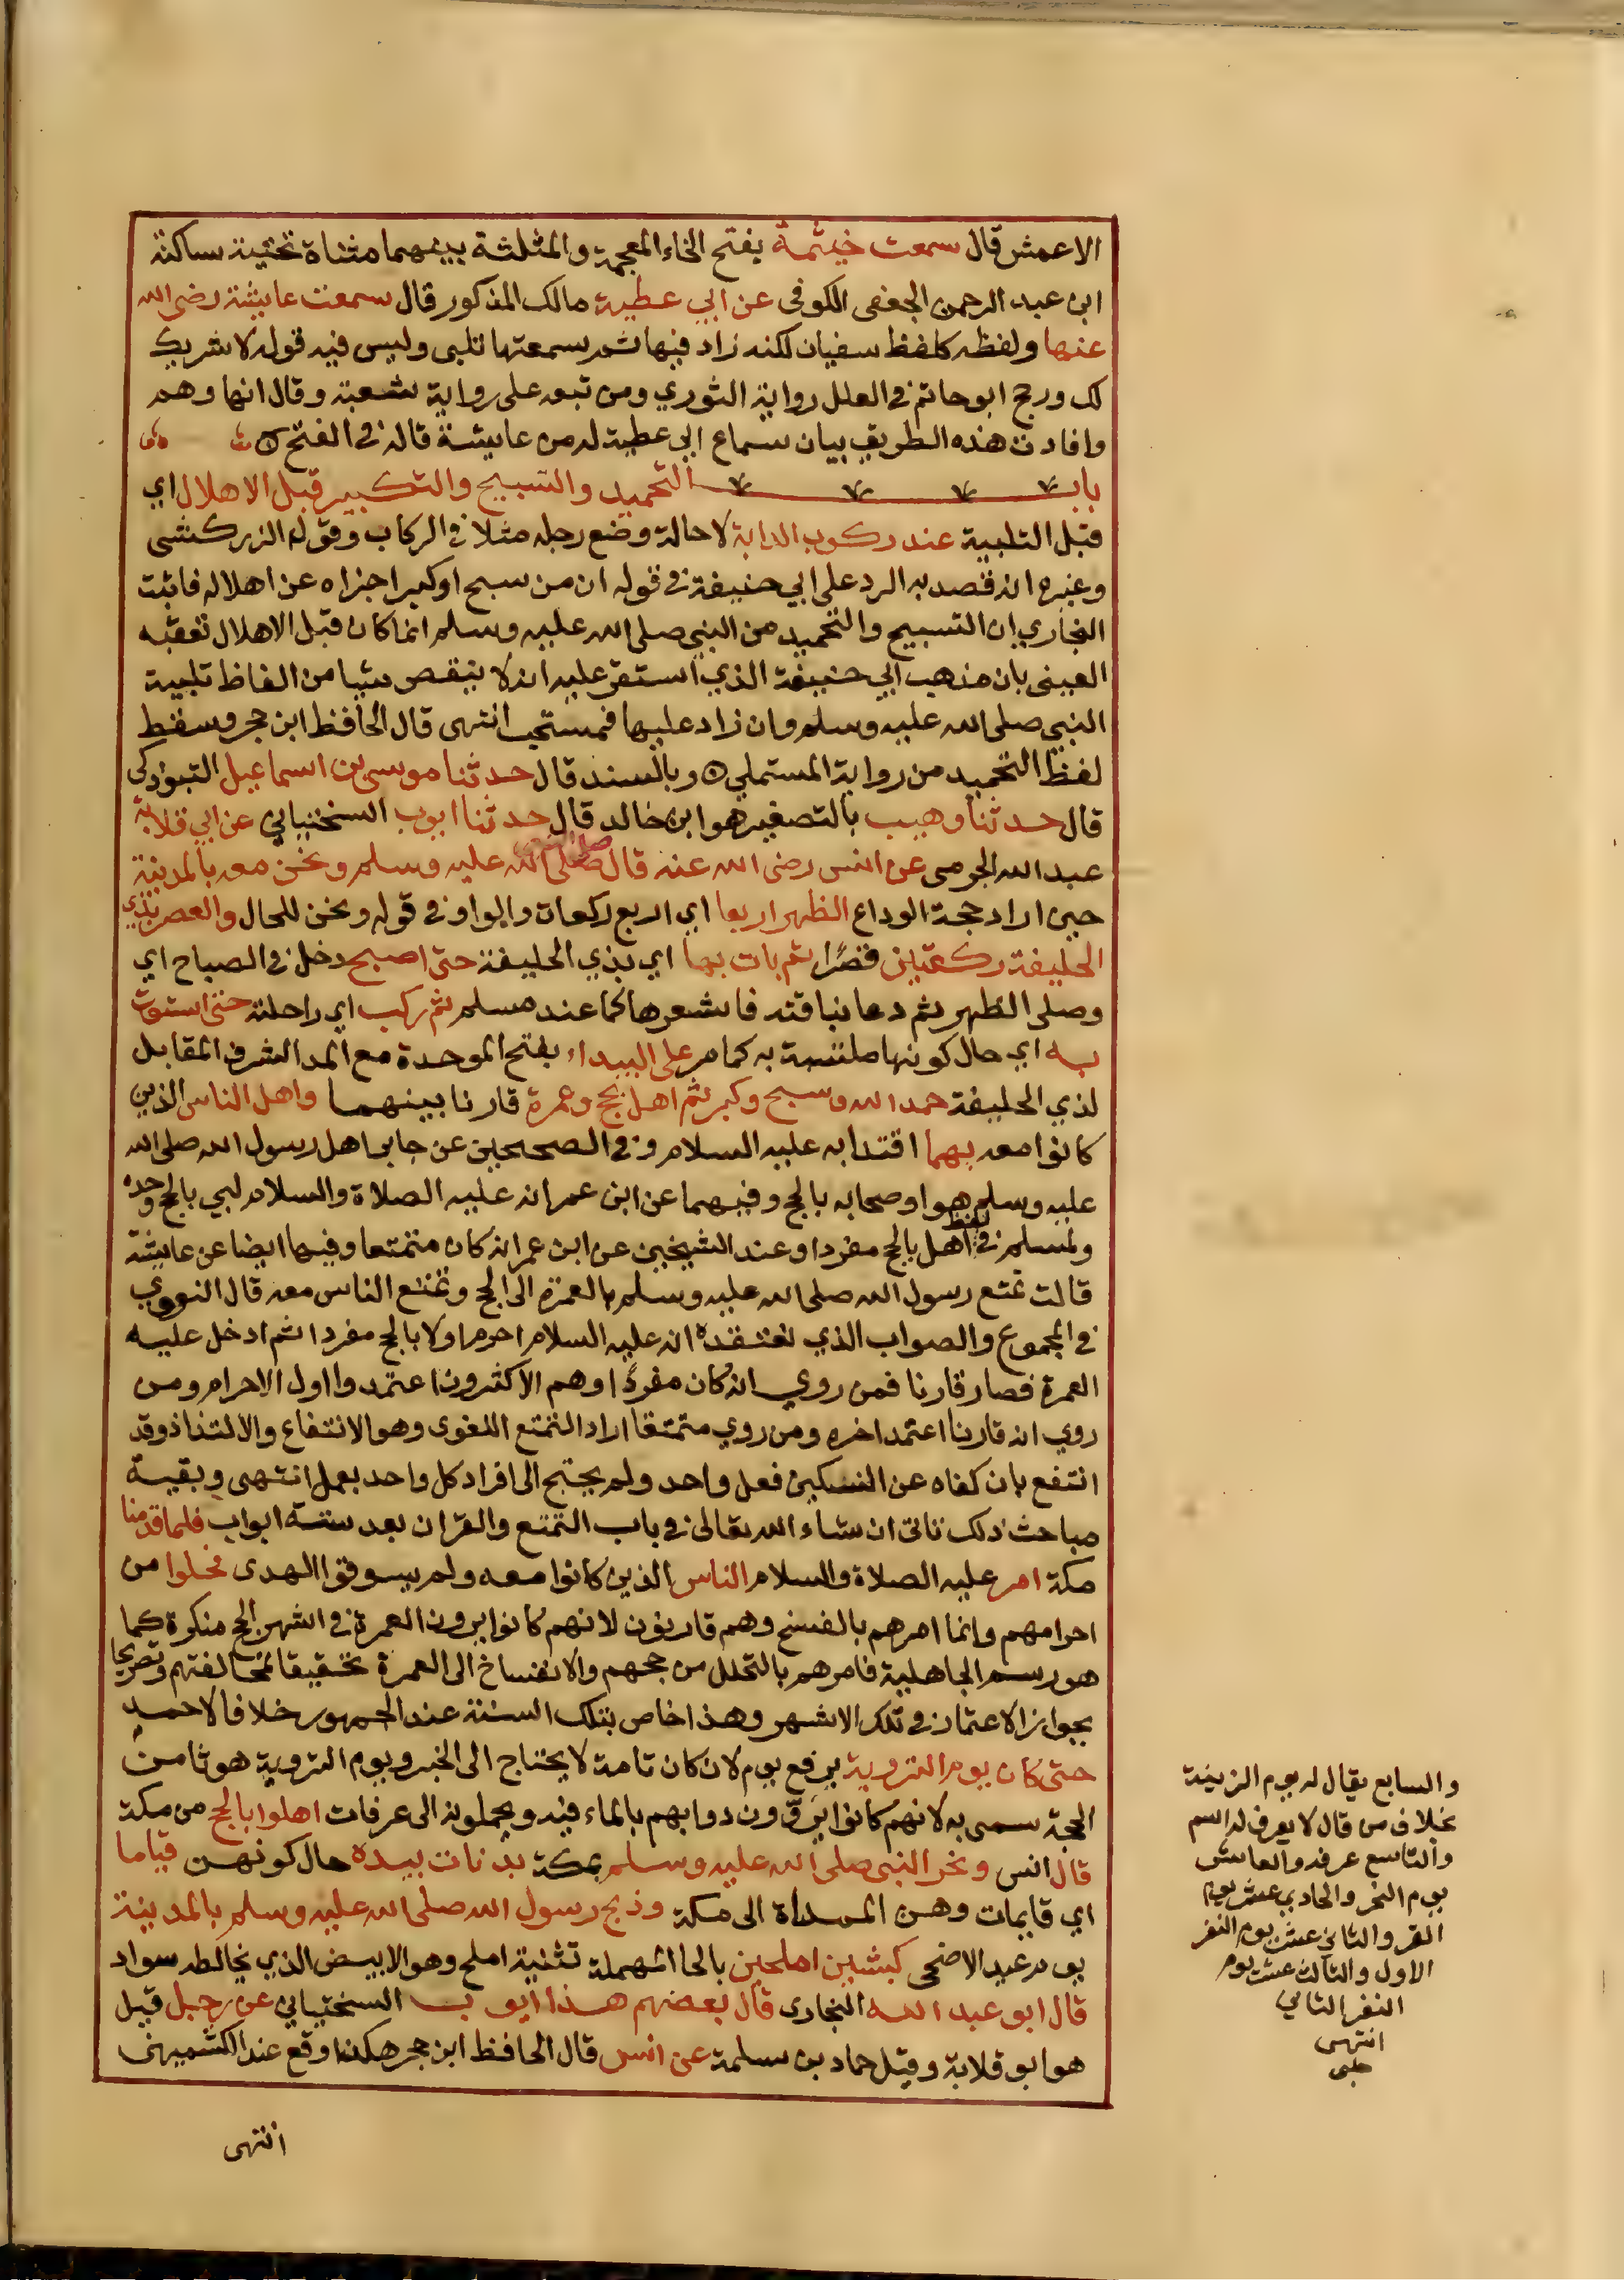 الاعمش قال سمعت خيثمة بفتح الخاء المعجمة والمثلثة بينهما مثناة تحتية ساكنة
ابن عبد الرحمن الجعفى الكوفى عن ابي عطية مالك المذكور قال سمعت عايشة رضى الله
عنها ولفظه كلفظ سفيان لكنه زاد فيها ثم سمعتها تلبى وليس فيه قوله لا شريك
لك ورجح ابو حاتم في العلل رواية الثوري ومن تبعه على رواية شعبة وقال انها وهم
وافادت هذه الطريق بيان سماع ابي عطية له من عايشة قاله في الفتح
باب التحميد والتسبيح والتكبير قبل الاهلال اي
قبل التلبية عند ركوب الدابة لا حالة وضع رجله مثلا في الركاب وقول الزركشى
وغيره انه قصد به الرد على ابي حنيفة في قوله ان من سبح او كبر اجزاه عن اهلاله فاثبت
البخاري ان التسبيح والتحميد من النبي صلى الله عليه وسلم انما كان قبل الاهلال تعقبه
العينى بان مذهب ابي حنيفة الذي استقر عليه انه لا ينقص شيا من الفاظ تلبية
النبي صلى الله عليه وسلم وان زاد عليها فمستحب انتهى قال الحافظ ابن حجر وسقط
لفظ التحميد من رواية المستملي ه وبالسند قال حدثنا موسى بن اسماعيل التبوذكى
قال حدثنا وهيب بالتصغير هو ابن خالد قال حدثنا ايوب السختيانى عن ابي قلابة
عبد الله الجرمى عن انس رضى الله عنه قال صلى الله عليه وسلم ونحن معه بالمدينة
حين اراد حجة الوداع الظهر اربعا اي اربع ركعات والواو في قوله ونحن للحال والعصر بذي
الحليفة ركعتين قصرًا ثم بات بها اي بذي الحليفة حتى اصبح دخل في الصباح اي
وصلى الظهر ثم دعا بناقته فاشعرها كما عند مسلم ثم ركب اي راحلته حتى استوت
به اي حال كونها ملتبسة به كما مر على البيداء بفتح الموحدة مع المد الشرف المقابل
لذي الحليفة حمد الله وسبح وكبر ثم اهل بحج وعمرة قارنا بينهما واهل الناس الذين
كانوا معه بهما اقتدا به عليه السلام وفي الصحيحين عن جابر اهل رسول الله صلى الله
عليه وسلم هو واصحابه بالحج وفيهما عن ابن عمر انه عليه الصلاة والسلام لبي بالحج وحده
ولمسلم في لفظ اهل بالحج مفردا وعند الشيخين عن ابن عمر انه كان متمتعا وفيهما ايضا عن عايشة
قالت تمتع رسول الله صلى الله عليه وسلم بالعمرة الى الحج وتمتع الناس معه قال النووي
في المجموع والصواب الذي نعتقده انه عليه السلام احرم اولا بالحج مفردا ثم ادخل عليه
العمرة فصار قارنا فمن روي انه كان مفردًا وهم الاكثرون اعتمدوا اول الاحرام ومن
روي انه قارنا اعتمد اخره ومن روي متمتعا اراد التمتع اللغوى وهو الانتفاع والالتذاذ وقد
انتفع بان كفاه عن النسكين فعل واحد ولم يحتج الى افراد كل واحد بعمل انتهى وبقية
مباحث ذلك تاتى ان شاء الله تعالى في باب التمتع والقران بعد ستة ابواب فلما قدمنا
مكة امر عليه الصلاة والسلام الناس الذين كانوا معه ولم يسوقوا الهدى فحلوا من
احرامهم وانما امرهم بالفسخ وهم قارنون لانهم كانوا يرون العمرة في اشهر الحج منكرة كما
هو رسم الجاهلية فامرهم بالتحلل من حجهم والانفساخ الى العمرة تحقيقا لمخالفتهم وتصريحا
بجواز الاعتمار في تلك الاشهر وهذا خاص بتلك السنة عند الجمهور خلافا لاحمد
حتى كان يوم التروية برفع يوم لان كان تامة لا يحتاج الى الخبر ويوم التروية هو ثامن
الحجة سمى به لانهم كانوا يَروّون دوابهم بالماء فيه ويحملونه الى عرفات اهلوا بالحج من مكة
قال انس ونحر النبى صلى الله عليه وسلم بمكة بدنات بيده حال كونهن قياما
اي قايمات وهن المهداة الى مكة وذبح رسول الله صلى الله عليه وسلم بالمدينة
يوم عيد الاضحى كبشين املحين بالحا المهملة تثنية املح وهو الابيض الذي يخالطه سواد
قال ابو عبد الله البخارى قال بعضهم هذا ايوب السختيانى عن رجل قيل
هو ابو قلابة وقيل حماد بن سلمة عن انس قال الحافظ ابن حجر هكذا وقع عند الكشميهنى
انتهى
والسابع يقال له يوم الزينة
بخلاف من قال لا يعرف له اسم
والتاسع عرفه والعاشر
يوم النحر والحادي عشر يوم
القر والثانى عشر يوم النفر
الاول والثالث عشر يوم
النفر الثاني
انتهى